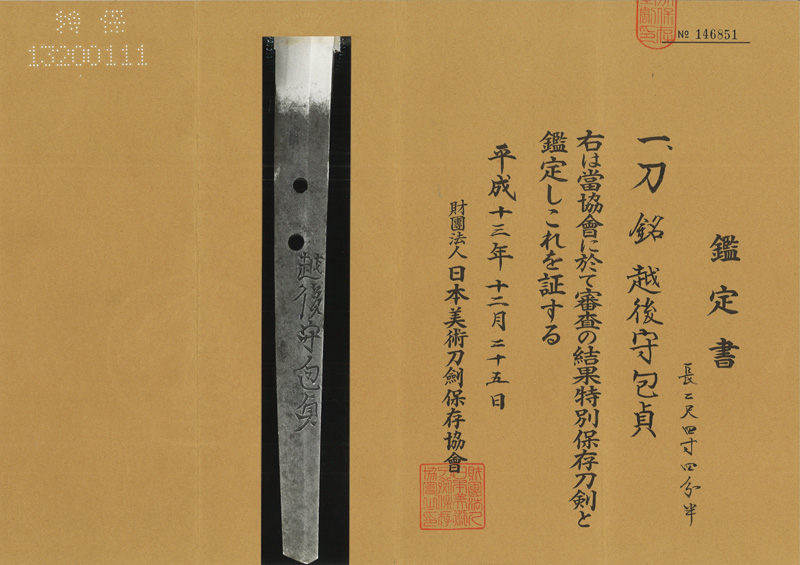 特 保
13200111
№ 146851
鑑定書
長二尺四寸四分半
一、刀 銘 越後守包貞
右は當協會に於て審査の結果特別保存刀剣と
鑑定しこれを証する
平成十三年十二月二十五日
財團法人 日本美術刀劍保存協會
越後守包貞